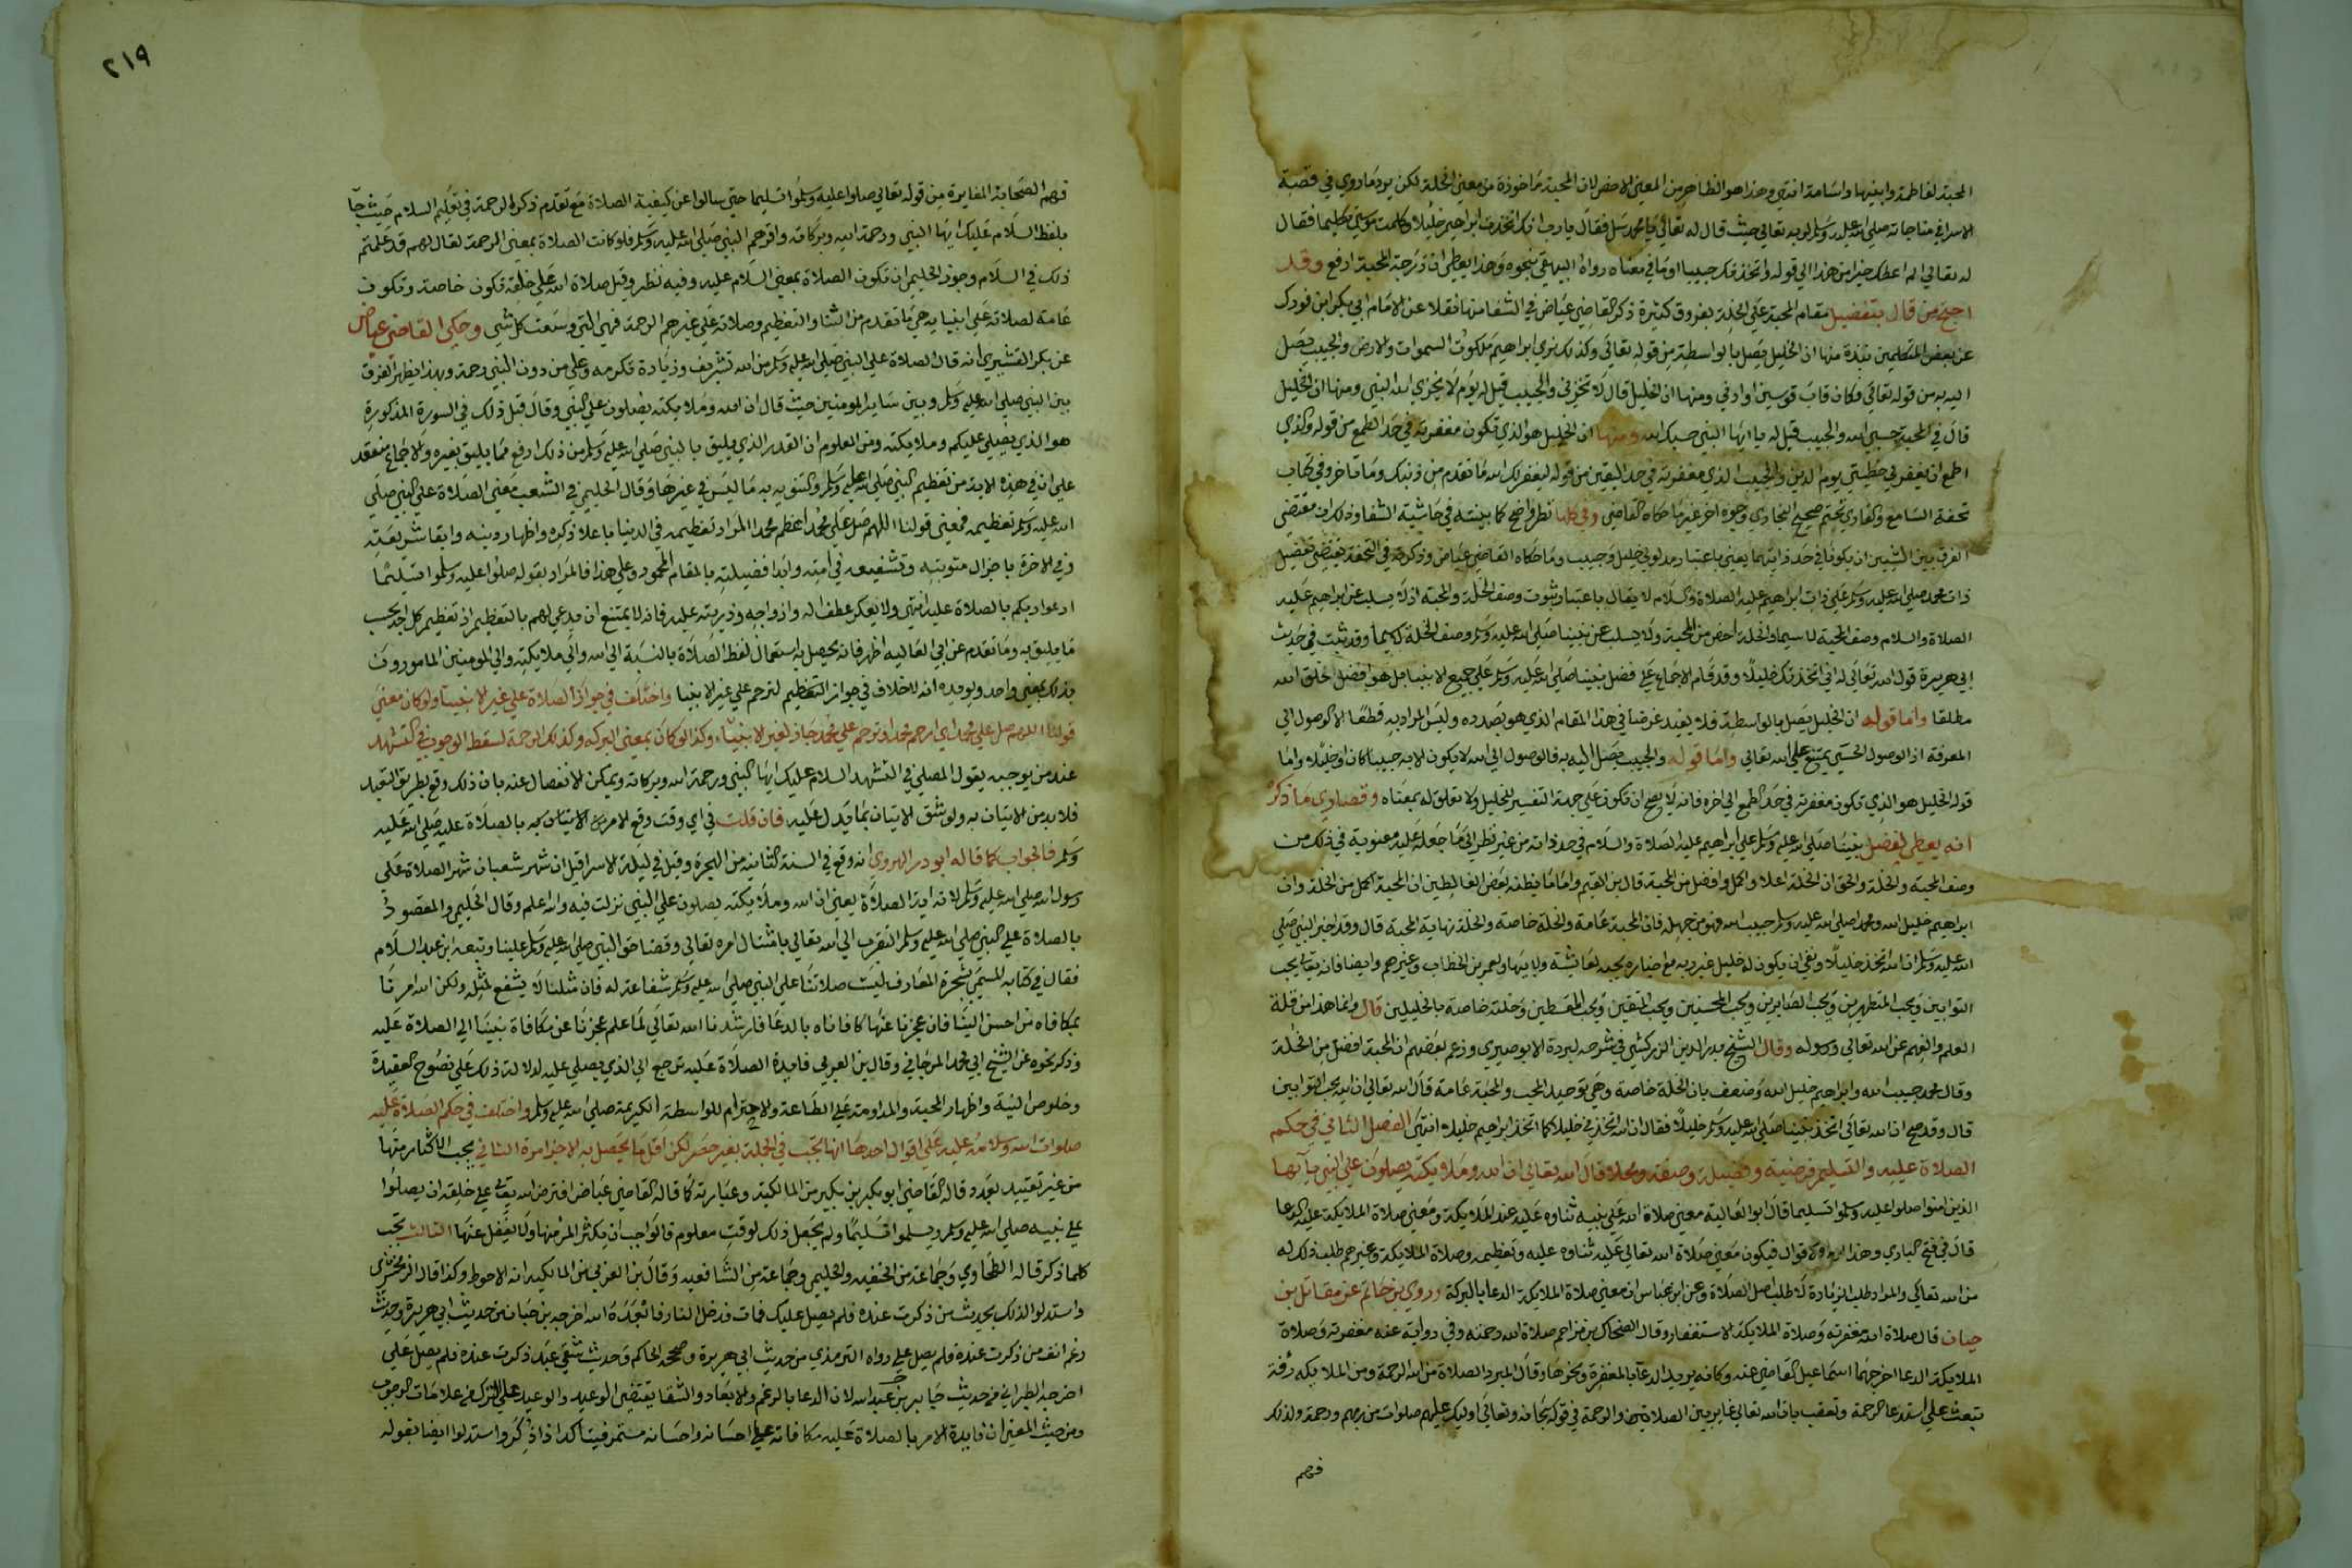 المحبة لفاطمة وابنيها واسامة انتهى وهذا هو الظاهر من المعنى الاخص لان المحبة ماخوذة من معنى الخلة لكن يرد ماروي في قصة
الاسرا في مناجاته صلى الله عليه وسلم لربه تعالى حيث قال له تعالى يا محمد سل فقال يا رب انك اتخذت ابراهيم خليلا وكلمت موسى تكليما فقال
له تعالى الم اعطك خيرا من هذا الى قوله واتخذتك حبيبا او ما في معناه رواه البيهقي بنحوه وهذا يعطى ان درجة المحبة ارفع وقد
احتج من قال بتفضيل مقام المحبة على الخلة بفروق كثيرة ذكر القاضي عياض في الشفا منها نقلا عن الامام ابي بكر ابن فورك
عن بعض المتكلمين نبذة منها ان الخليل يصل بالواسطة من قوله تعالى وكذلك نرى ابراهيم ملكوت السموات والارض والحبيب يصل
اليه به من قوله تعالى فكان قاب قوسين او ادنى ومنها ان الخليل قال لا تخزني والحبيب قيل له يوم لا يخزي الله النبي ومنها ان الخليل
قال في المحنة حسبي الله والحبيب قيل له يا ايها النبي حسبك الله ومنها ان الخليل هو الذي تكون مغفرته في حد الطمع من قوله والذي
اطمع ان يغفر لي خطيتي يوم الدين والحبيب الذي مغفرته في حد اليقين من قوله ليغفر لك الله ما تقدم من ذنبك وما تاخر وفي كتاب
تحفة السامع والقاري بختم صحيح البخاري وجوه اخر غير ما حكاه القاضي وفي كلها نظر واضح كما بينته في حاشية الشفا وذلك ان مقتضى
الفرق بين الشيين ان يكونا في حد ذاتهما يعني باعتبار مدلولي خليل وحبيب وما حكاه القاضي عياض وذكرته في التحفة يقتضي تفضيل
ذات محمد صلى الله عليه وسلم على ذات ابراهيم عليه الصلاة والسلام لا يقال باعتبار ثبوت وصف الخلة والمحبة اذ لا يسلب عن ابراهيم عليه
الصلاة والسلام وصف المحبة لا سيما والخلة اخص من المحبة ولا يسلب عن نبينا صلى الله عليه وسلم وصف الخلة لا سيما وقد ثبت في حديث
ابي هريرة قول الله تعالى له اني اتخذتك خليلا وقد قام الاجماع على فضل نبينا صلى الله عليه وسلم على جميع الانبيا بل هو افضل خلق الله
مطلقا واما قوله ان الخليل يصل بالواسطة فلا يفيد غرضا في هذا المقام الذي هو بصدده وليس المراد به قطعا الا الوصول الى
المعرفة اذ الوصول الحسي يمتنع على الله تعالى واما قوله والحبيب يصل اليه به فالوصول الى الله لا يكون الا به حبيبا كان او خليلا واما
قوله الخليل هو الذي تكون مغفرته في حد الطمع الى اخره فانه لا يصح ان تكون على جهة التفسير للخليل ولا تعلق له بمعناه وقصارى ما ذكر
انه يعطى تفضيل نبينا صلى الله عليه وسلم على ابراهيم عليه الصلاة والسلام في حد ذاته من غير نظر الى ما جعله عليه معنوية في ذلك من
وصف المحبة والخلة والحق ان الخلة اعلا واكمل وافضل من المحبة قال بن القيم واما ما يظنه بعض الغالطين ان المحبة اكمل من الخلة وان
ابراهيم خليل الله ومحمدا صلى الله عليه وسلم حبيب الله فهو من جهله فان المحبة عامة والخلة خاصة والخلة نهاية المحبة قال وقد اخبر النبي صلى
الله عليه وسلم ان الله اتخذه خليلا ونفى ان يكون له خليل غير ربه مع اخباره بحبه لعائشة ولابيها ولعمر بن الخطاب وغيرهم وايضا فان الله تعالى يحب
التوابين ويحب المتطهرين ويحب الصابرين ويحب المحسنين ويحب المتقين ويحب المقسطين وخلته خاصة بالخليلين قال وانما هذا من قلة
العلم والفهم عن الله تعالى ورسوله وقال الشيخ بدر الدين الزركشي في شرحه لبردة الابوصيري وزعم بعضهم ان المحبة افضل من الخلة
وقال محمد حبيب الله وابراهيم خليل الله وضعف بان الخلة خاصة وهي توحيد المحب والمحبة عامة قال الله تعالى ان الله يحب التوابين
قال وقد صح ان الله تعالى اتخذ نبينا صلى الله عليه وسلم خليلا فقال ان الله اتخذني خليلا كما اتخذ ابراهيم خليلا انتهى الفصل الثاني في حكم
الصلاة عليه والتسليم فرضية وفضيلة وصفة ومحلا قال الله تعالى ان الله وملايكته يصلون على النبي يا ايها
الذين امنوا صلوا عليه وسلموا تسليما قال ابو العالية معنى صلاة الله على نبيه ثناوه عليه عند الملايكة ومعنى صلاة الملايكة عليه الدعا
قال في فتح الباري وهذا اولى الاقوال فيكون معنى صلاة الله تعالى عليه ثناوه عليه وتعظيمه وصلاة الملايكة وغيرهم طلب ذلك له
من الله تعالى والمراد طلب الزيادة لا طلب اصل الصلاة وعن ابن عباس ان معنى صلاة الملايكة الدعا بالبركة وروي بن حاتم عن مقاتل بن
حيان قال صلاة الله مغفرته وصلاة الملايكة الاستغفار وقال الضحاك بن مزاحم صلاة الله رحمته وفي رواية عنه مغفرته وصلاة
الملايكة الدعا اخرجهما اسماعيل القاضي عنه وكانه يريد الدعا بالمغفرة ونحوها وقال المبرد الصلاة من الله الرحمة ومن الملايكه رقة
تبعث على استدعا الرحمة وتعقب بان الله تعالى غاير بين الصلاة والرحمة في قوله سبحانه وتعالى اوليك عليهم صلوات من ربهم ورحمة وكذلك
فهم
٢١٩
فهم الصحابة المغايرة من قوله تعالى صلوا عليه وسلموا تسليما حتى سالوا عن كيفية الصلاة مع تقدم ذكر الرحمة في تعليم السلام حيث جا
بلفظ السلام عليك ايها النبي ورحمة الله وبركاته واقرهم النبي صلى الله عليه وسلم فلو كانت الصلاة بمعنى الرحمة لقال لهم قد علمتم
ذلك في السلام وجوز الحليمي ان تكون الصلاة بمعنى السلام عليه وفيه نظر وقيل صلاة الله على خلقه تكون خاصة وتكون
عامة لصلاته على انبيايه هي ما تقدم من الثنا والتعظيم وصلاته على غيرهم الرحمة فهي التي وسعت كل شي وحكى القاضي عياض
عن بكر القشيري انه قال الصلاة على النبي صلى الله عليه وسلم من الله تشريف وزيادة تكرمه وعلى من دون النبي رحمة وبهذا يظهر الفرق
بين النبي صلى الله عليه وسلم وبين ساير المومنين حيث قال ان الله وملايكته يصلون على النبي وقال قبل ذلك في السورة المذكورة
هو الذي يصلي عليكم وملايكته ومن المعلوم ان القدر الذي يليق بالنبي صلى الله عليه وسلم من ذلك ارفع مما يليق بغيره والاجماع منعقد
على ان في هذه الاية من تعظيم النبي صلى الله عليه وسلم والتنويه به ما ليس في غيرها وقال الحليمي في الشعب معنى الصلاة على النبي صلى
الله عليه وسلم تعظيمه فمعنى قولنا اللهم صل على محمد اعظم محمدا المراد تعظيمه في الدنيا باعلا ذكره واظهار دينه وابقا شريعته
وفي الاخرة باجزال مثوبته وتشفيعه في امته وابدا فضيلته بالمقام المحمود وعلى هذا فالمراد بقوله صلوا عليه وسلموا تسليما
ادعوا ربكم بالصلاة عليه انتهى ولا يعكر عطف اله وازواجه وذريته عليه فانه لا يمتنع ان يدعى لهم بالتعظيم اذ تعظيم كل احد بحسب
ما يليق به وما تقدم عن ابي العاليه اظهر فانه يحصل به استعمال لفظ الصلاة بالنسبة الى الله والى ملايكته والى المومنين المامورون
بذلك بمعنى واحد ويويده انه لا خلاف في جواز التعظيم لترحم على غير الانبيا واختلف في جواز الصلاة على غير الانبيا ولو كان معنى
قولنا اللهم صل على محمد اي ارحم محمدا وترحم على محمد جاز لغير الانبياء وكذا لو كان بمعنى البركه وكذلك الرحمة لسقط الوجوب في التشهد
عند من يوجبه بقول المصلي في التشهد السلام عليك ايها النبي ورحمة الله وبركاته ويمكن الانفصال عنه بان ذلك وقع بطريق التعبد
فلا بد من الاتيان به ولو سبق الاتيان بما يدل عليه فان قلت في اي وقت وقع الامر بالصلاة عليه صلى الله عليه
وسلم فالجواب كما قاله ابو ذر الهروي انه وقع في السنة الثانيه من الهجرة وقيل في ليلة الاسرا قيل ان شهر شعبان شهر الصلاة على
رسول الله صلى الله عليه وسلم لانه اية الصلاة يعني ان الله وملايكته يصلون على النبي نزلت فيه والله اعلم وقال الحليمي والمقصود
بالصلاة على النبي صلى الله عليه وسلم التقرب الى الله تعالى بامتثال امره تعالى وقضا حق النبي صلى الله عليه وسلم علينا وتبعه ابن عبد السلام
فقال في كتابه المسمى بشجرة المعارف ليست صلاتنا على النبي صلى الله عليه وسلم شفاعة له فان مثلنا لا يشفع لمثله ولكن الله امرنا
بمكافاه من احسن الينا فان عجزنا عنها كافاناه بالدعا فارشدنا الله تعالى لما علم عجزنا عن مكافاة نبينا الى الصلاة عليه
وذكر نحوه عن الشيخ ابي محمد المرجاني وقال بن العربي فايدة الصلاة عليه ترجع الى الذي يصلي عليه لدلالة ذلك على نصوح العقيدة
وخلوص النية واظهار المحبة والمداومة على الطاعة والاحترام للواسطة الكريمة صلى الله عليه وسلم واختلف في حكم الصلاة عليه
صلوات الله وسلامه عليه على اقوال احدها انها تجب في الجملة بغير حصر لكن اقل ما يحصل به الاجزا مرة الثاني يجب الاكثار منها
من غير تقييد بعدد قاله القاضي ابو بكر بن بكير من المالكية وعبارته كما قاله القاضي عياض افترض الله تعالى على خلقه ان يصلوا
على نبيه صلى الله عليه وسلم ويسلموا تسليما ولم يجعل ذلك لوقت معلوم فالواجب ان يكثر المر منها ولا يغفل عنها الثالث تجب
كلما ذكر قاله الطحاوي وجماعة من الحنفيه والحليمي وجماعة من الشافعيه وقال بن العربي من المالكيه انه الاحوط وكذا قال الزمخشري
واستدلوا لذلك بحديث من ذكرت عنده فلم يصل عليك فمات فدخل النار فابعده الله اخرجه بن حبان من حديث ابي هريرة وحديث
رغم انف من ذكرت عنده فلم يصل على رواه الترمذي من حديث ابي هريرة وصححه الحاكم وحديث شقي عبد ذكرت عنده فلم يصل على
اخرجه الطبراني من حديث جابر بن عبد الله لان الدعا بالرغم والابعاد والشقا يقتضي الوعيد والوعيد على الترك من علامات الوجوب
ومن حيث المعنى ان فايدة الامر بالصلاة عليه مكافاته على احسانه واحسانه مستمر فيتاكد اذا ذكر واستدلوا ايضا بقوله